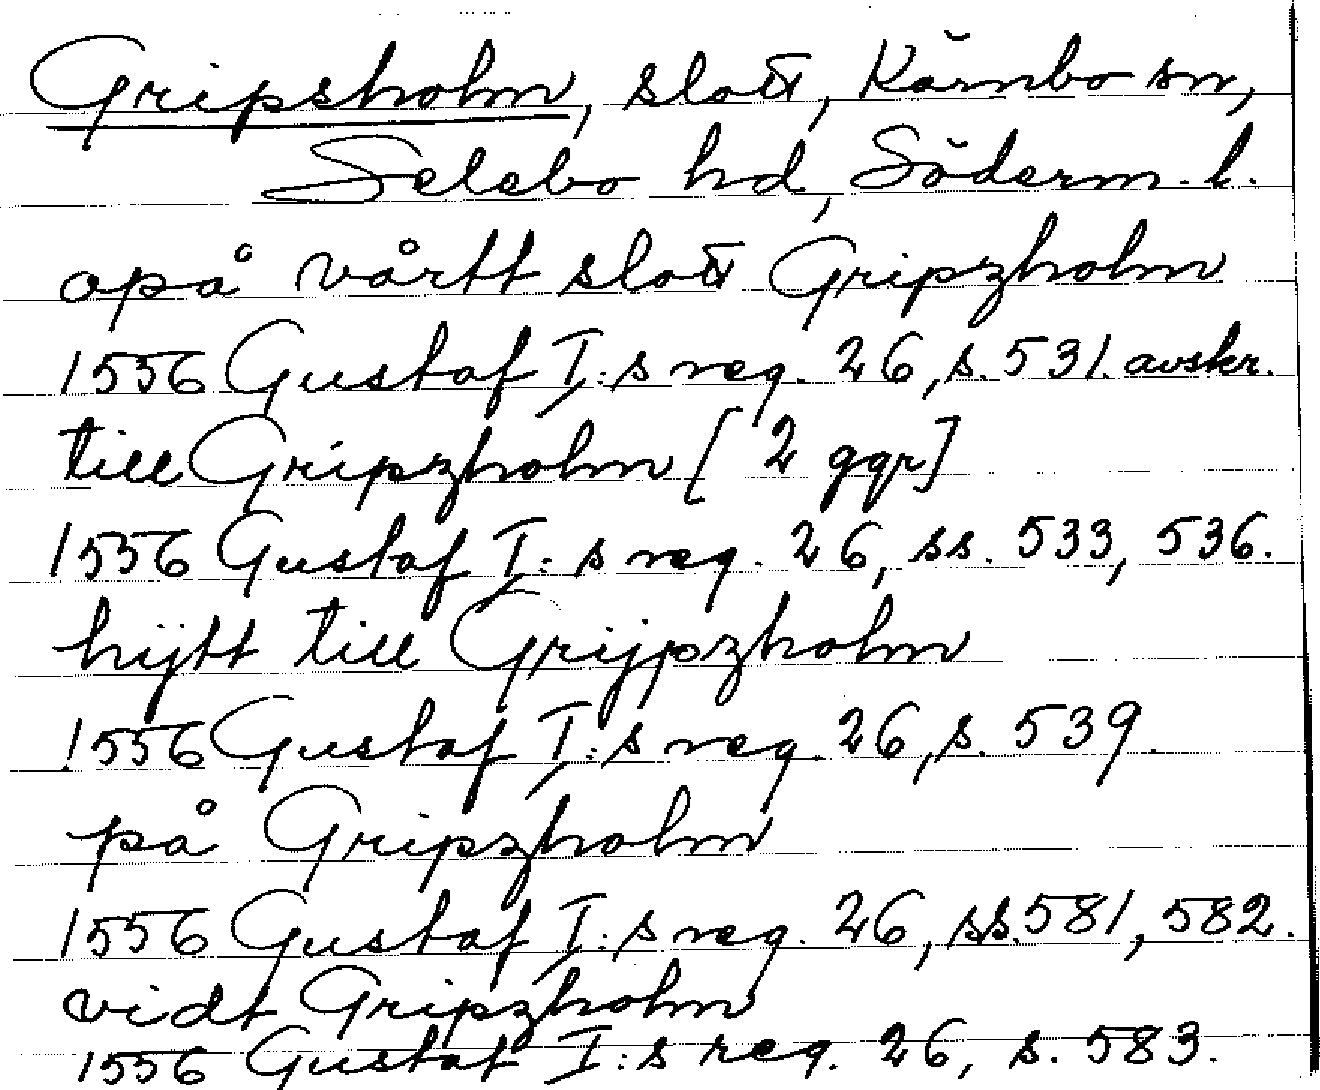 Gripsholm, slott, Kärnbo sn,
Selebo hd, Söderm. l.
opå vårtt slott Gripzholm
1556 Gustaf I:s reg. 26, s. 531. avskr.
till Gripzholm [2 ggr]
1556 Gustaf I:s reg. 26, ss. 533, 536.
hijtt till Grijpzholm
1556 Gustaf I:s reg. 26, s. 539.
på Gripzholm
1556 Gustaf I:s reg. 26, ss. 581, 582.
vidt Gripzholm
1556 Gustaf I:s reg. 26, s. 583.